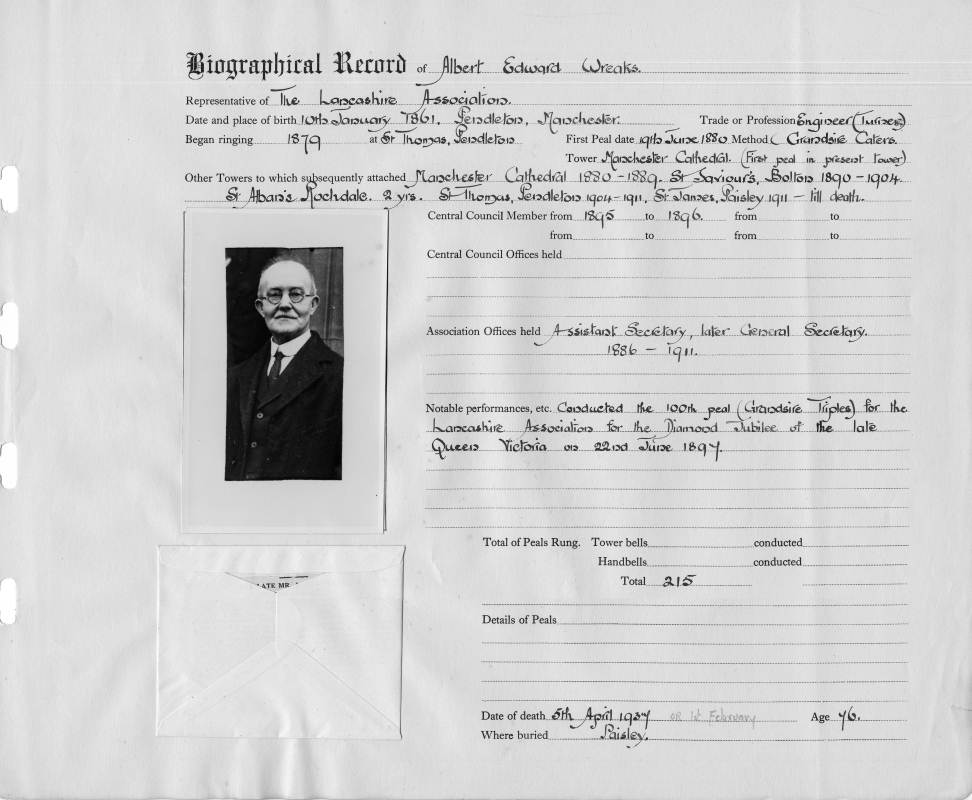 Biographical Record of Albert Edward Wreaks.
Representative of The Lancashire Association.
Date and place of birth 10th January 1861. Pendleton, Manchester. Trade or Profession Engineer (Turner)
Began ringing 1879 at St Thomas, Pendleton First Peal date 19th June 1880 Method Grandsire Caters.
Tower Manchester Cathedral. (First peal in present tower)
Other Towers to which subsequently attached Manchester Cathedral 1880-1889. St Saviour's, Bolton 1890-1904.
St Alban's Rochdale. 2 yrs. St Thomas, Pendleton 1904-1911, St James, Paisley 1911 - till death.
Central Council Member from 1895 to 1896. from to
from to from to
Central Council Offices held
Association Offices held Assistant Secretary, later General Secretary.
1886 - 1911.
Notable performances, etc. Conducted the 100th peal (Grandsire Triples) for the
Lancashire Association for the Diamond Jubilee of the late
Queen Victoria on 22nd June 1897.
Total of Peals Rung. Tower bells conducted
Handbells conducted
Total 215
LATE MR.
Details of Peals
Date of death 5th April 1937 or 1st February Age 76.
Where buried Paisley.